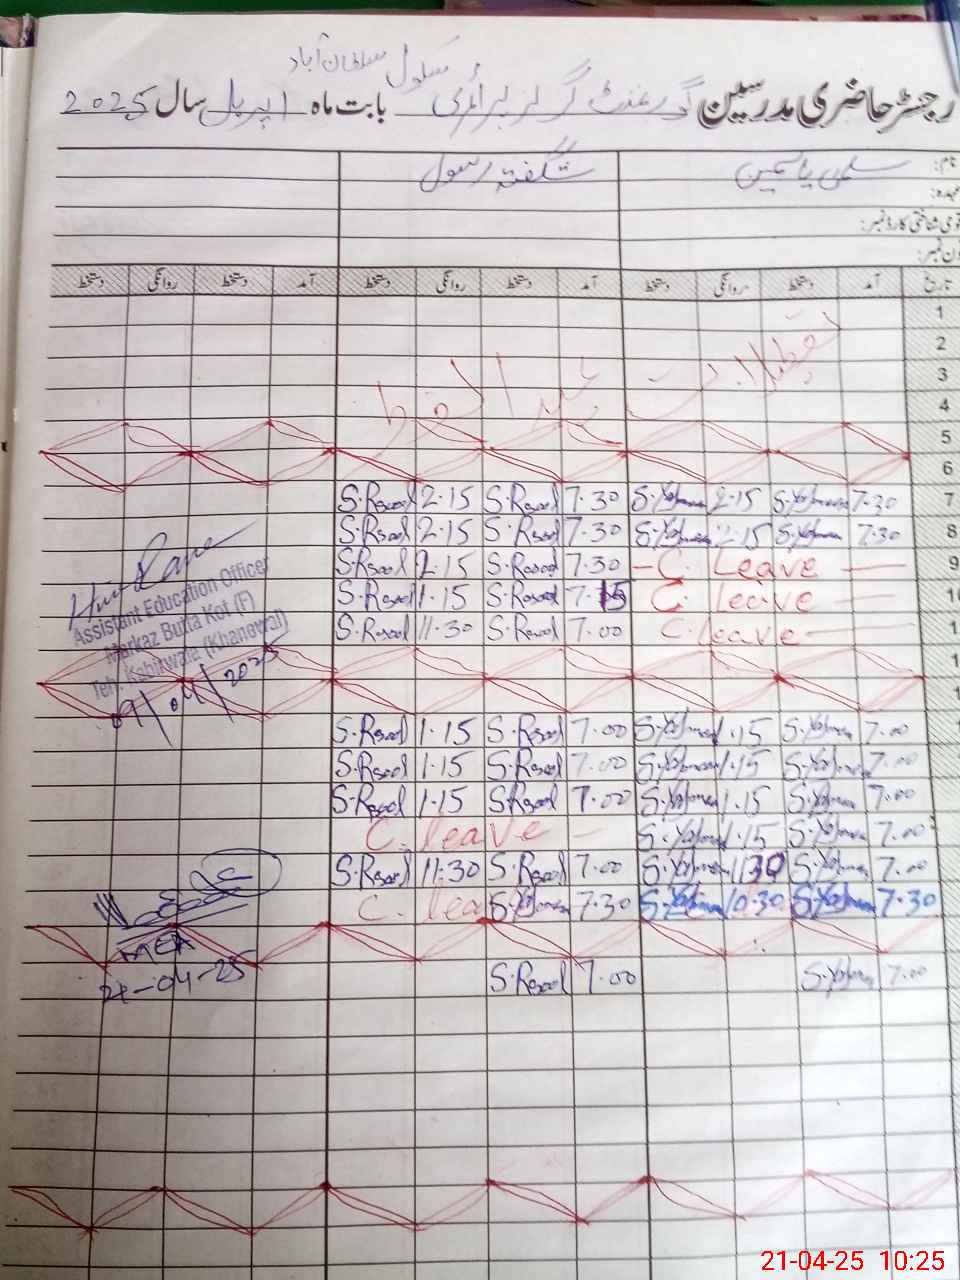 سکول سلطان آباد
رجسٹر حاضری مدرسین گورنمنٹ گرلز پرائمری بابت ماہ اپریل سال 2025
نام: سلمیٰ یاسمین شگفتہ رسول
عہدہ:
قومی شناختی کارڈ نمبر:
فون نمبر:
تاریخ آمد دستخط روانگی دستخط آمد دستخط روانگی دستخط آمد دستخط روانگی دستخط
1
2
3
4
تعطیلات عید الفطر
5
6
S.Rasool 2.15 S.Rasool 7.30 S.Yasmeen 2.15 S.Yasmeen 7.30 7
S.Rasool 2.15 S.Rasool 7.30 S.Yasmeen 2.15 S.Yasmeen 7.30 8
S.Rasool 2.15 S.Rasool 7.30 C. Leave 9
S.Rasool 1.15 S.Rasool 7.15 C. leave 10
S.Rasool 11.30 S.Rasool 7.00 C. leave 1
Assistant Education Officer
Markaz Butta Kot (F)
Teh. Kabirwala (Khanewal)
09/04/2025
1
1
S.Rasool 1.15 S.Rasool 7.00 S.Yasmeen 1.15 S.Yasmeen 7.00
S.Rasool 1.15 S.Rasool 7.00 S.Yasmeen 1.15 S.Yasmeen 7.00
S.Rasool 1.15 S.Rasool 7.00 S.Yasmeen 1.15 S.Yasmeen 7.00
C. leave S.Yasmeen 1.15 S.Yasmeen 7.00
S.Rasool 11:30 S.Rasool 7.00 S.Yasmeen 11.30 S.Yasmeen 7.00
C. lea S.Yasmeen 7.30 S.Yasmeen 10.30 S.Yasmeen 7.30
MEA
21-04-25
S.Rasool 7.00 S.Yasmeen 7.00
21-04-25 10:25